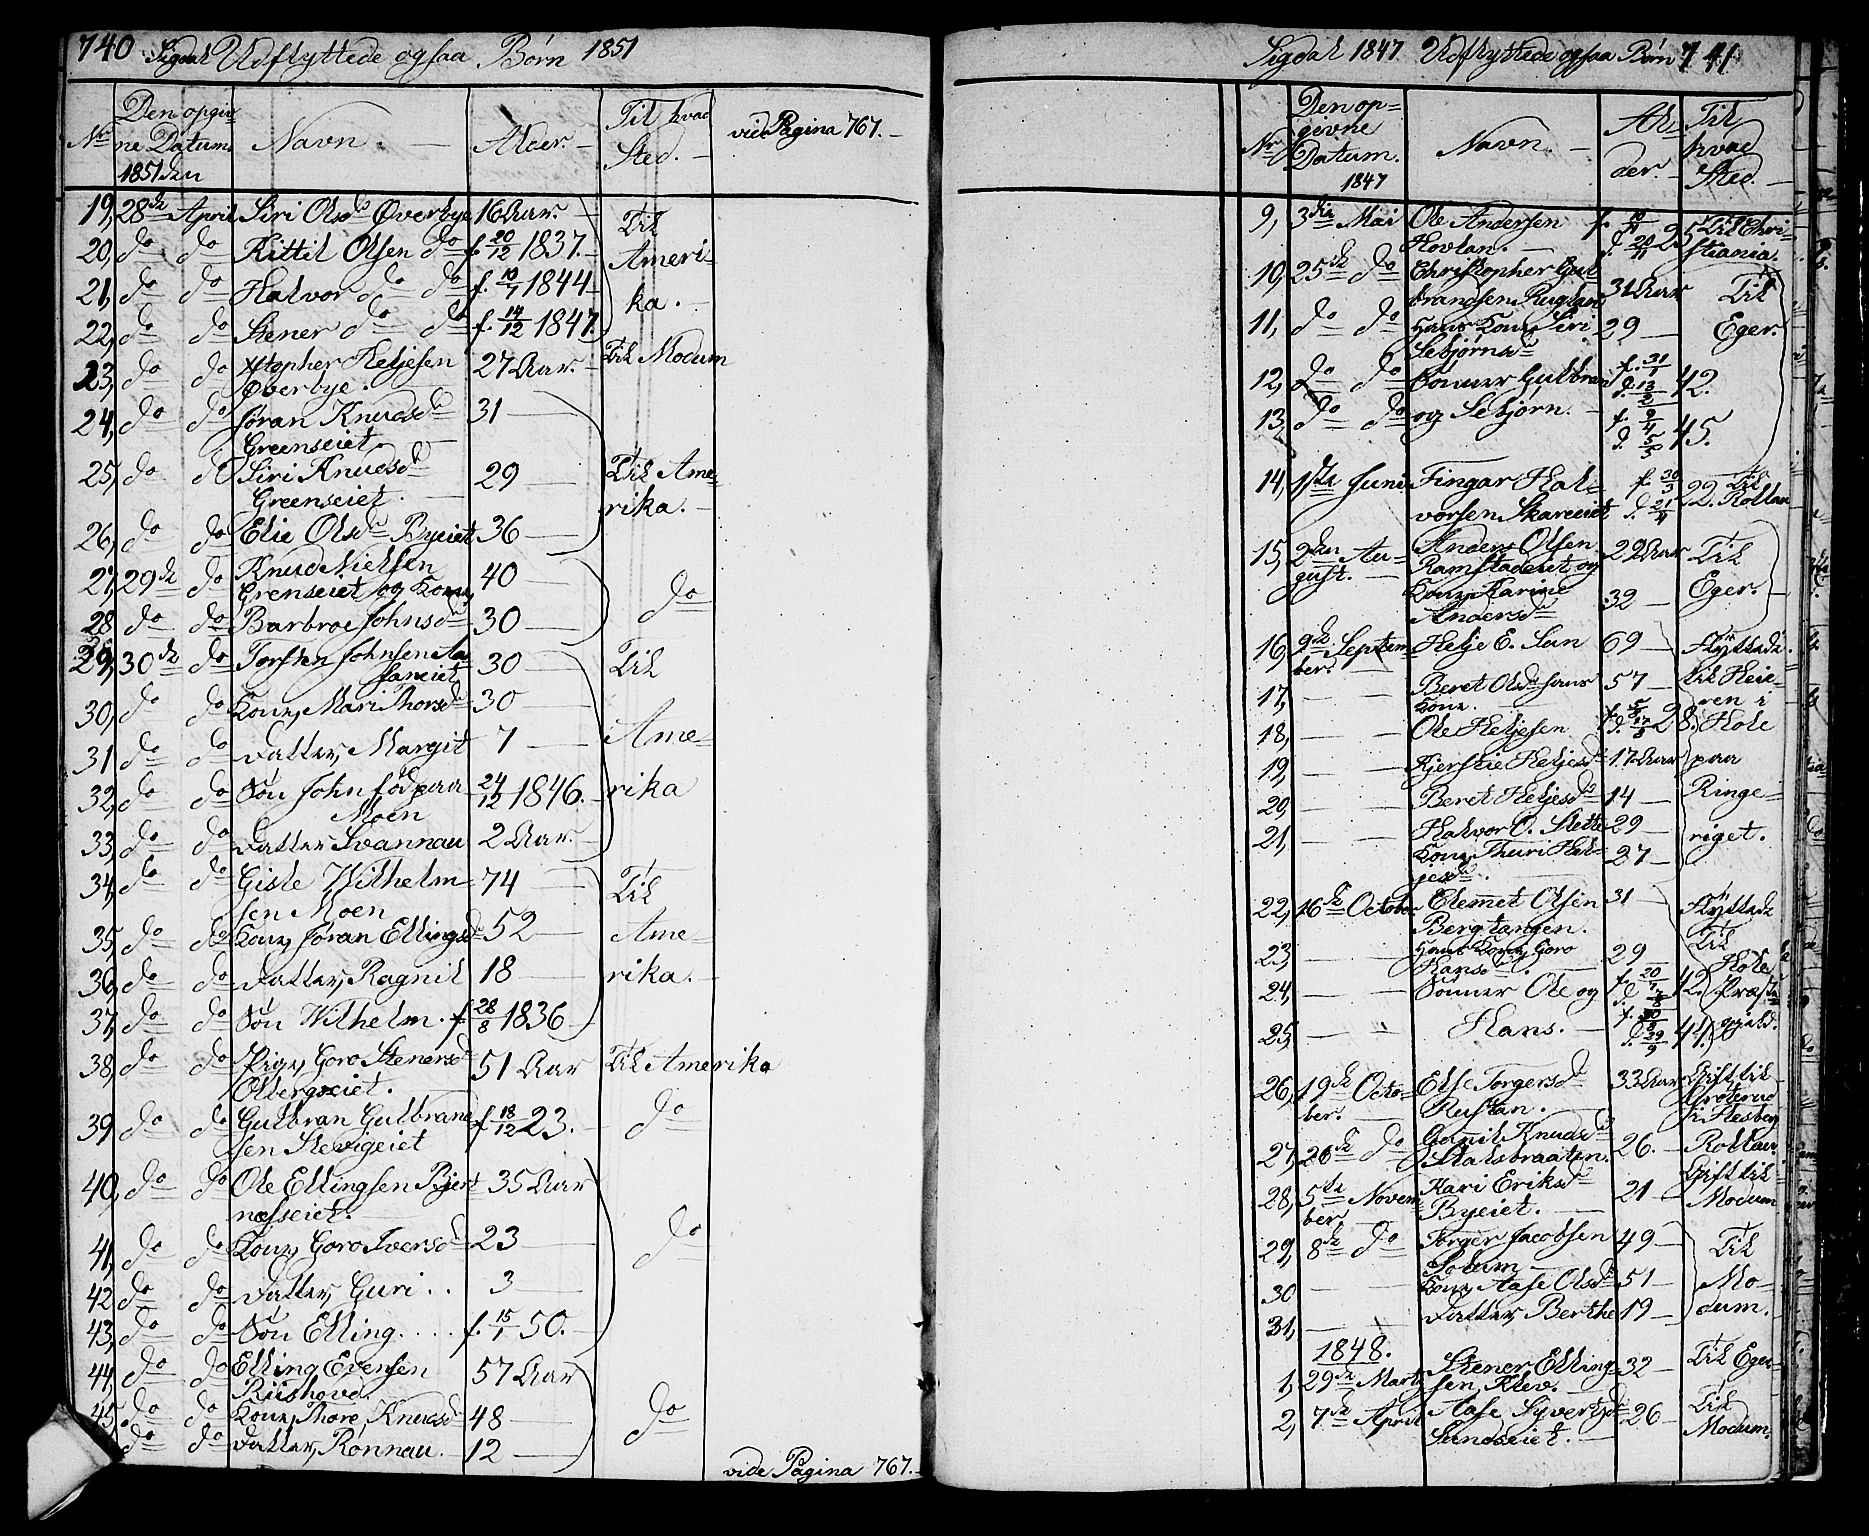 740 Sigdal Udflyttede ogsaa Børn 1851
Nr Den opgivne Datum 1851 den Navn. Alder. Til hvad Sted. vide Pagina 767.
19, 28de April Siri Olsd. Øverbye 16 Aar. Til
20, do do Kittil Olsen do f. 20/12 1837. Ameri-
21, do do Halvor do do f. 10/7 1844 ka.
22, do do Stener do do f. 14/12 1847.
23, do do Xtopher Heljesen 27 Aar. Til Modum
Øverbye.
24, do do Jøran Knudsd. 31
Greenseiet.
25, do do Siri Knudsd. 29 Til Ame-
Greenseiet. rika.
26, do do Elie Olsd. Byeiet 36
27, 29de do Knud Nielsen 40
Grenseiet og Kone, do
28 do do Barbroe Johnsd. 30
29, 30de do Torsten Johnsen 30 Til
30, do do Kone, Mari Thorsd. 30
31 do do Datter, Margit 7 Ame-
32, do do Søn John fød paa 24/12 1846. rika
Moen
33, do do Datter Svannau 2 Aar.
34, do do Gisle Wilhelm- 74 Til
sen Moen
35, do do Kone, Jøran Ellingsd. 52 Ame-
36, do do Datter, Ragnil 18 rika.
37, do do Søn Wilhelm. f. 28/8 1836
38, do do Pige, Goro Stenersd. 51 Aar Til Amerika
Olbergseiet.
39 do do Gulbran Gulbrand- f. 18/12 23. do
sen Stevigeiet
40, do do Ole Ellingsen Bjert- 35 Aar
næsseiet.
41, do do Kone, Goro Iversd. 23 do
42 do do Datter, Guri.. 3
43, do do Søn Elling.... f. 15/1 50.
44, do do Elling Evensen 57 Aar
Riishovd.
45, do do Kone, Thore Knudsd. 48 do
do do Datter, Rønnau. 12
vide Pagina 767.
Sigdal 1847 Udflyttede ogsaa Børn 741
Nr Den opgivne Datum. 1847 Navn. Alder. Til hvad Sted.
9, 3die Mai Ole Andersen f. 10/11 25. Til Chri-
Hovlan. d. 20/11 stiania.
10, 25de do Christopher Gul- 31 Aar Til
bransen Ruglan
11, do do Hans Kone, Siri 29 Eger.
Sebjørnsd.
12, do do Sønner Gulbran f. 31/1 d. 13/2 42.
13, do do og Sebjørn. f. 9/4 d. 5/5 45.
14, 1ste Juni Fingar Hal- f. 30/3 22. Til
vorsen Skareeiet d. 21/4 Rollau
15, 2den Au- Anders Olsen 22 Aar Til
gust. Ramstadeiet og
Kone, Karine 32 Eger.
Andersd.
16, 9de Septem- Helje E. Lan 69 Flyttede
ber.
17, Beret Olsd. hans 57 til Hele-
Kone. ven i
18, Ole Heljesen 28. Hole
19, Kjerstie Heljesd. 17 Aar paa
20, Beret Heljesd. 14 Ringe-
21, Halvor O. Slette 29 riget.
Kone, Thuri Hel- 27
jesd.
22, 16de October Clemet Olsen 31 Flyttede
Bergtangen. Til
23, Hans Kone, Goro 29 Hole
Hansd.
24, Sønner Ole og f. 20/7 42. Præste-
25, Hans. d. 29/9 44. gjeld.
26, 19de Octo- Else Torgersd. 33 Aar Gift til
ber. Rustan. Grøterud
i Flesberg
27, 26de do Gunil Knudsd. 26. Rollau.
Stalsbraaten.
28, 5te Novem- Kari Eriksd. 21 Gift til
ber Byeiet. Modum
29, 8de do Torger Jacobsen 49 Til
Solum
30 Kone, Aase Olsd. 51 Mo-
31, Datter, Berthe 19 dum.
1848.
1, 29de Marts Stener Elling- 32 Til Eger
sen Klev.
2, 7de April Aase Syvertsd. 26 Til
Sundseiet. Modum.